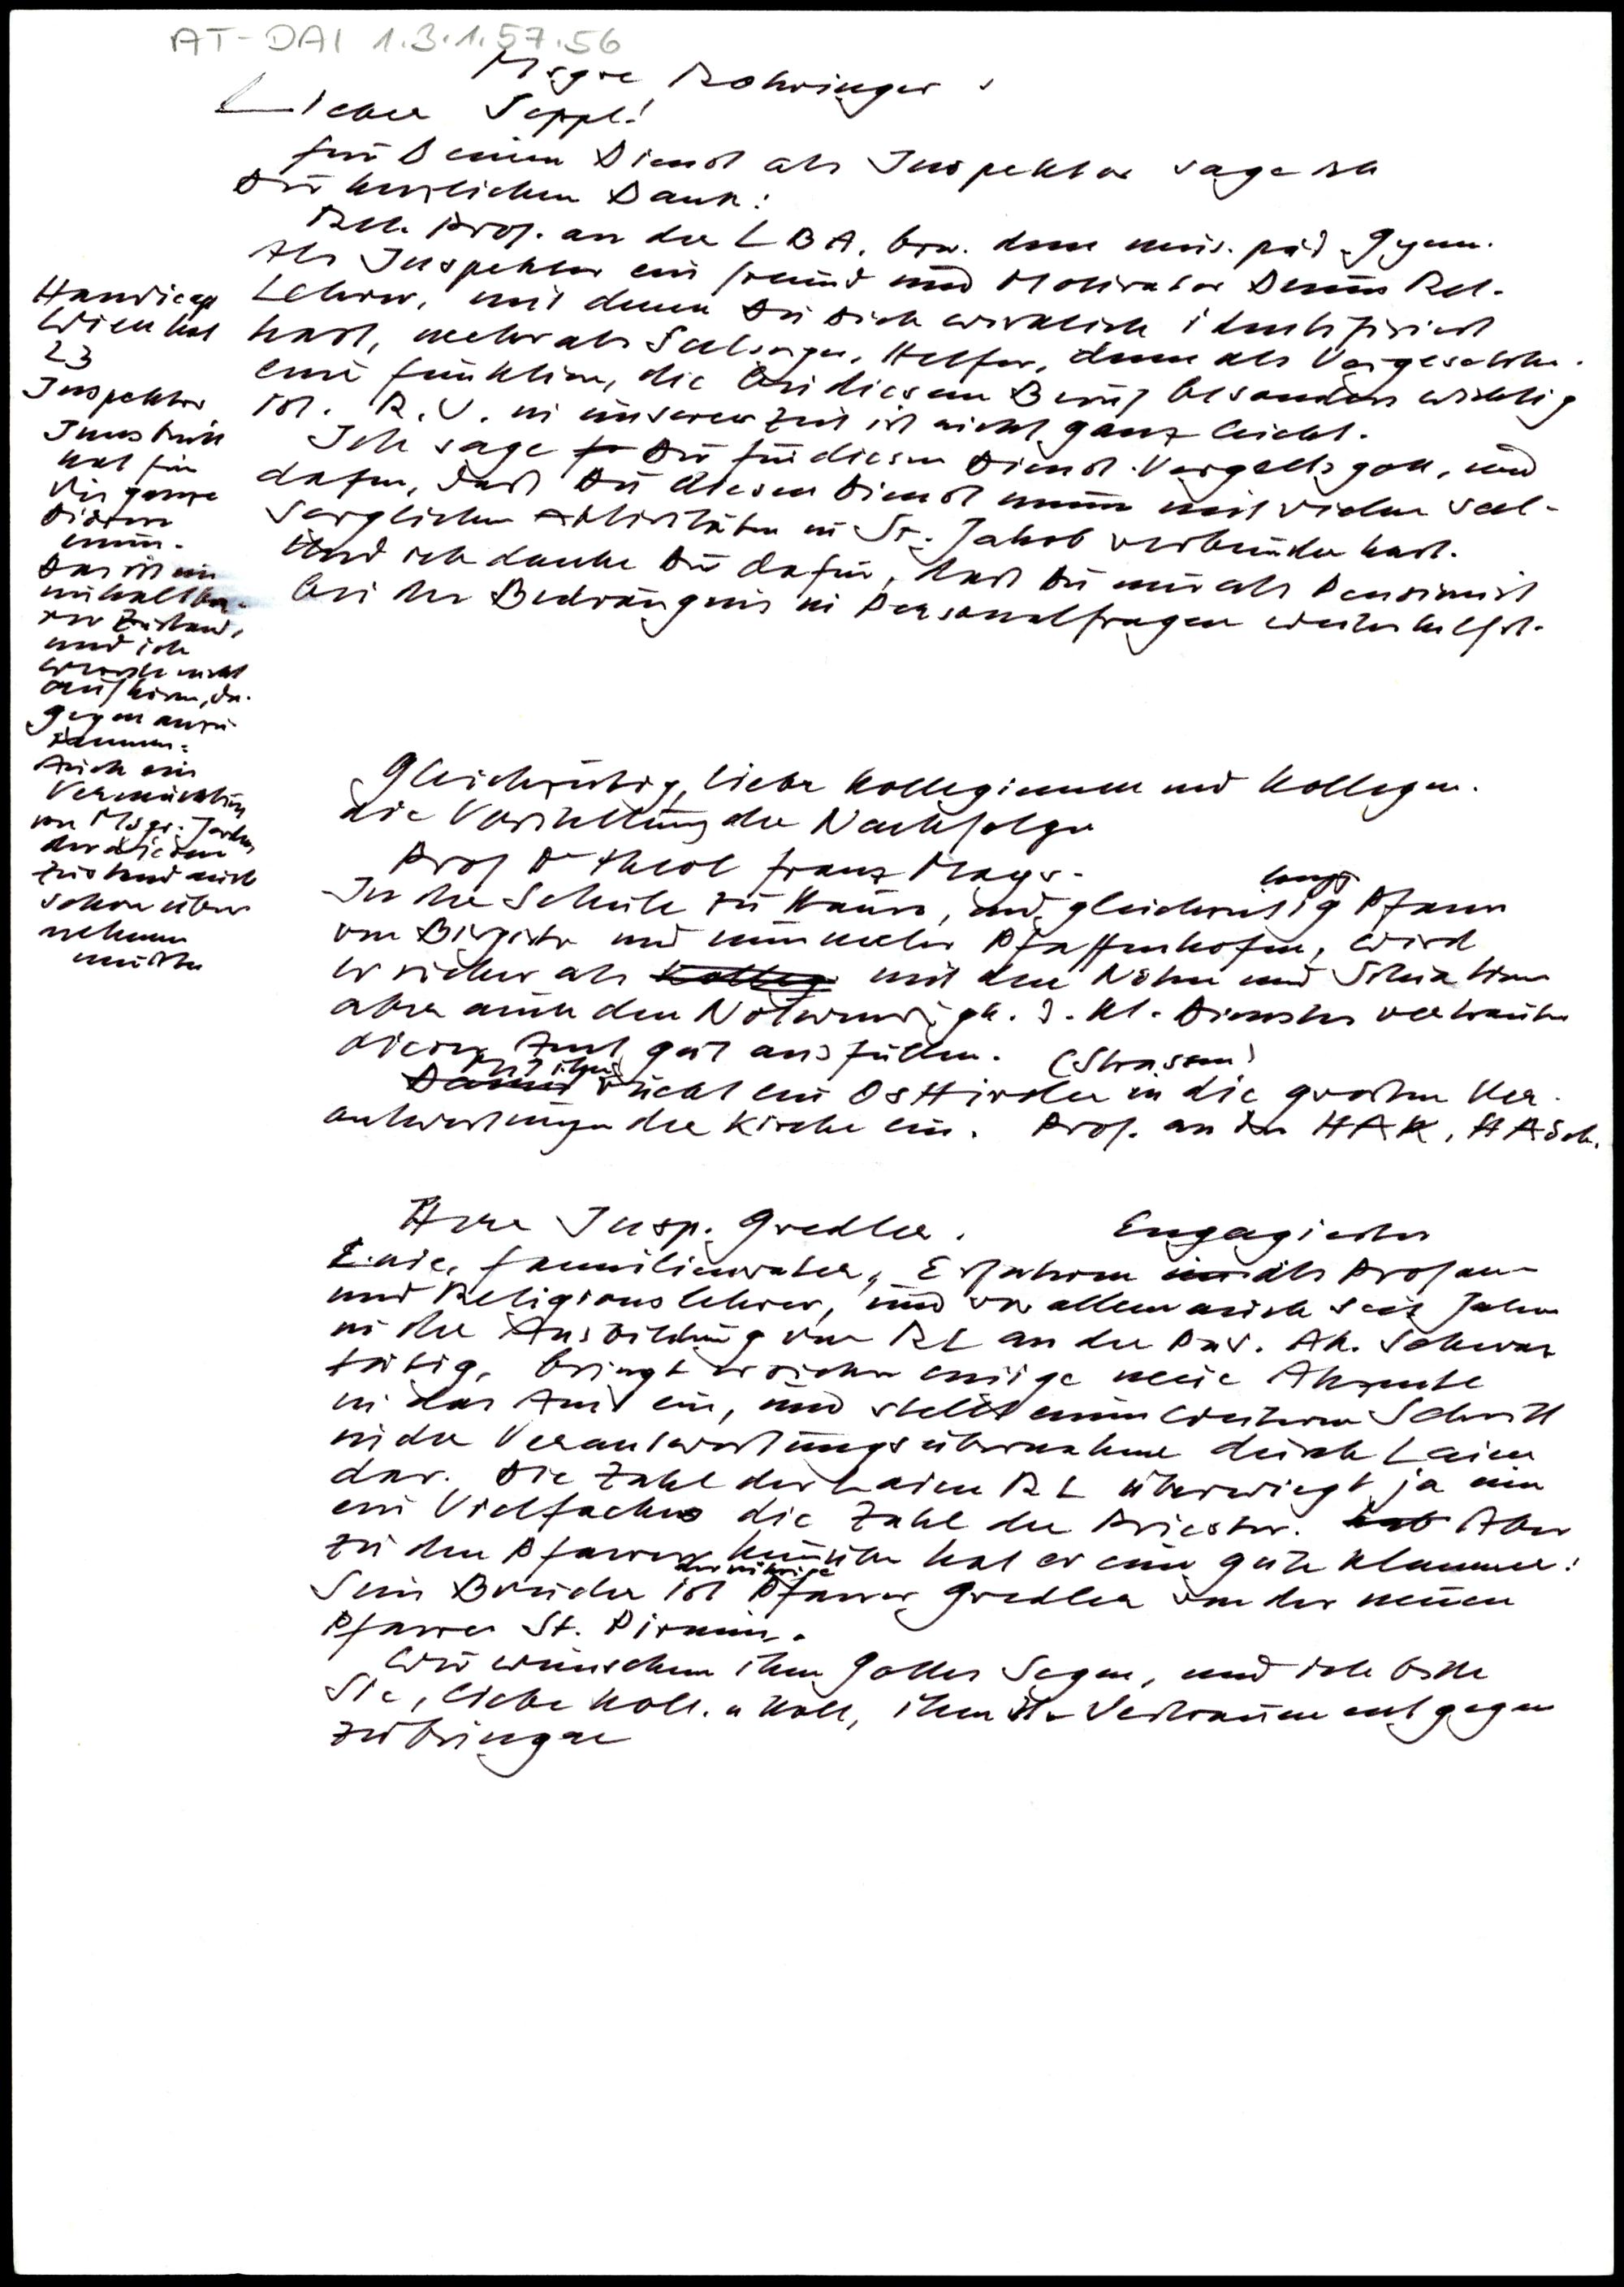 AT-DAI 1.3.1.57.56
Msgre Rohringer
Lieber Seppl!
für Deinen Dienst als Inspektor sage ich
Dir herzlichen Dank:
Rel. Prof. an der LBA, bzw. dem mus. päd. Gymn.
Als Inspektor ein Freund und Motivator Deiner Rel.
Lehrer, mit denen Du Dich wirklich identifiziert
hast, mehr als Seelsorger, Helfer, denn als Vorgesetzter.
eine Funktion, die bei diesem Beruf besonders wichtig
ist. R.U. in unserer Zeit ist nicht ganz leicht.
Ich sage Dir für diesen Dienst Vergelts gott, und
dafür, daß Du diesen Dienst immer mit vielen seel-
sorglichen Aktivitäten in St. Jakob verbunden hast.
Und ich danke Dir dafür, daß Du mir als Pensionist
bei der Bedrängnis in Personalfragen weiterhilfst.
Handicap
Wien hat
23
Inspektor
Innsbruck
hat für
die ganze
Diözese
einen.
Das ist ein
unhaltba-
rer Zustand,
und ich
werde nicht
aufhören, da-
gegen anzu-
rennen.
Auch ein
Vermächtnis
von Msgr.
der diesen
Zustand auch
schon über
nehmen
mußte
Gleichzeitig, liebe Kolleginnen und Kollegen.
die Vorstellung der Nachfolger
Prof Dr theol Franz Mayr.
In der Schule zu Hause, und gleichzeitig lange Pfarrer
von Birgitz und nunmehr Pfaffenhofen, wird
er sicher als Kolleg mit den Nöten und Situation
aber auch den Notwendigk. d. kl. Dienstes vertraut
dieses Amt gut ausfüllen. (Strassen)
Damit mit ihm rückt ein Osttiroler in die großen Ver-
antwortungen der Kirche ein. Prof. an der HAK, HASch.
Herr Insp. Gredler. Engagierter
Laie, Familienvater, Erfahren als Profan-
und Religionslehrer, und vor allem auch seit Jahren
in der Ausbildung von RL an der Päd. Ak. Schwaz
tätig, bringt er sicher einige neue Akzente
in das Amt ein, und stellt einen weiteren Schritt
in der Verantwortungsübernahme durch Laien
dar. Die Zahl der Laien RL überwiegt ja um
ein Vielfaches die Zahl der Priester. Aber
zu den Pfarrern hinüber hat er eine gute Klammer:
Sein Bruder ist der rührige Pfarrer Gredler von der neuen
Pfarre St. Pirmin.
Wir wünschen ihm Gottes Segen, und ich bitte
Sie, liebe Koll. u Koll, ihm Vertrauen entgegen
zubringen